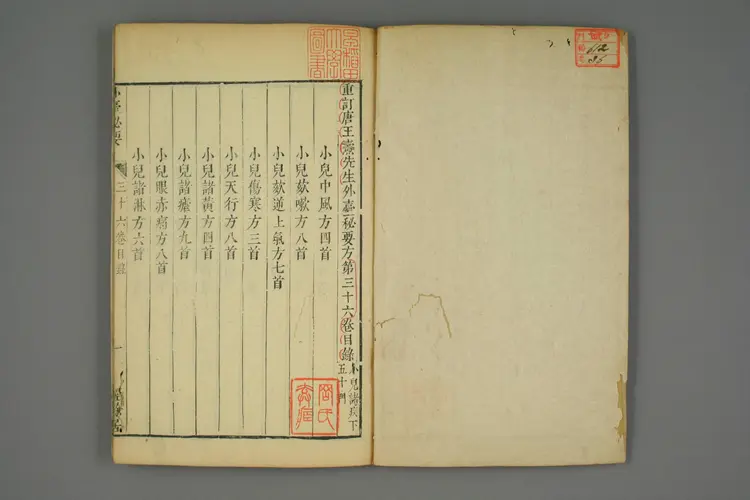 重訂唐王燾先生外臺秘要方第三十六卷目錄 小兒諸疾下
五十門
小兒中風方四首
小兒欬嗽方八首
小兒欬逆上氣方七首
小兒傷寒方三首
小兒天行方八首
小兒諸黃方四首
小兒諸瘧方九首
小兒眼赤痛方八首
小兒諸淋方六首
三十六卷目錄
一